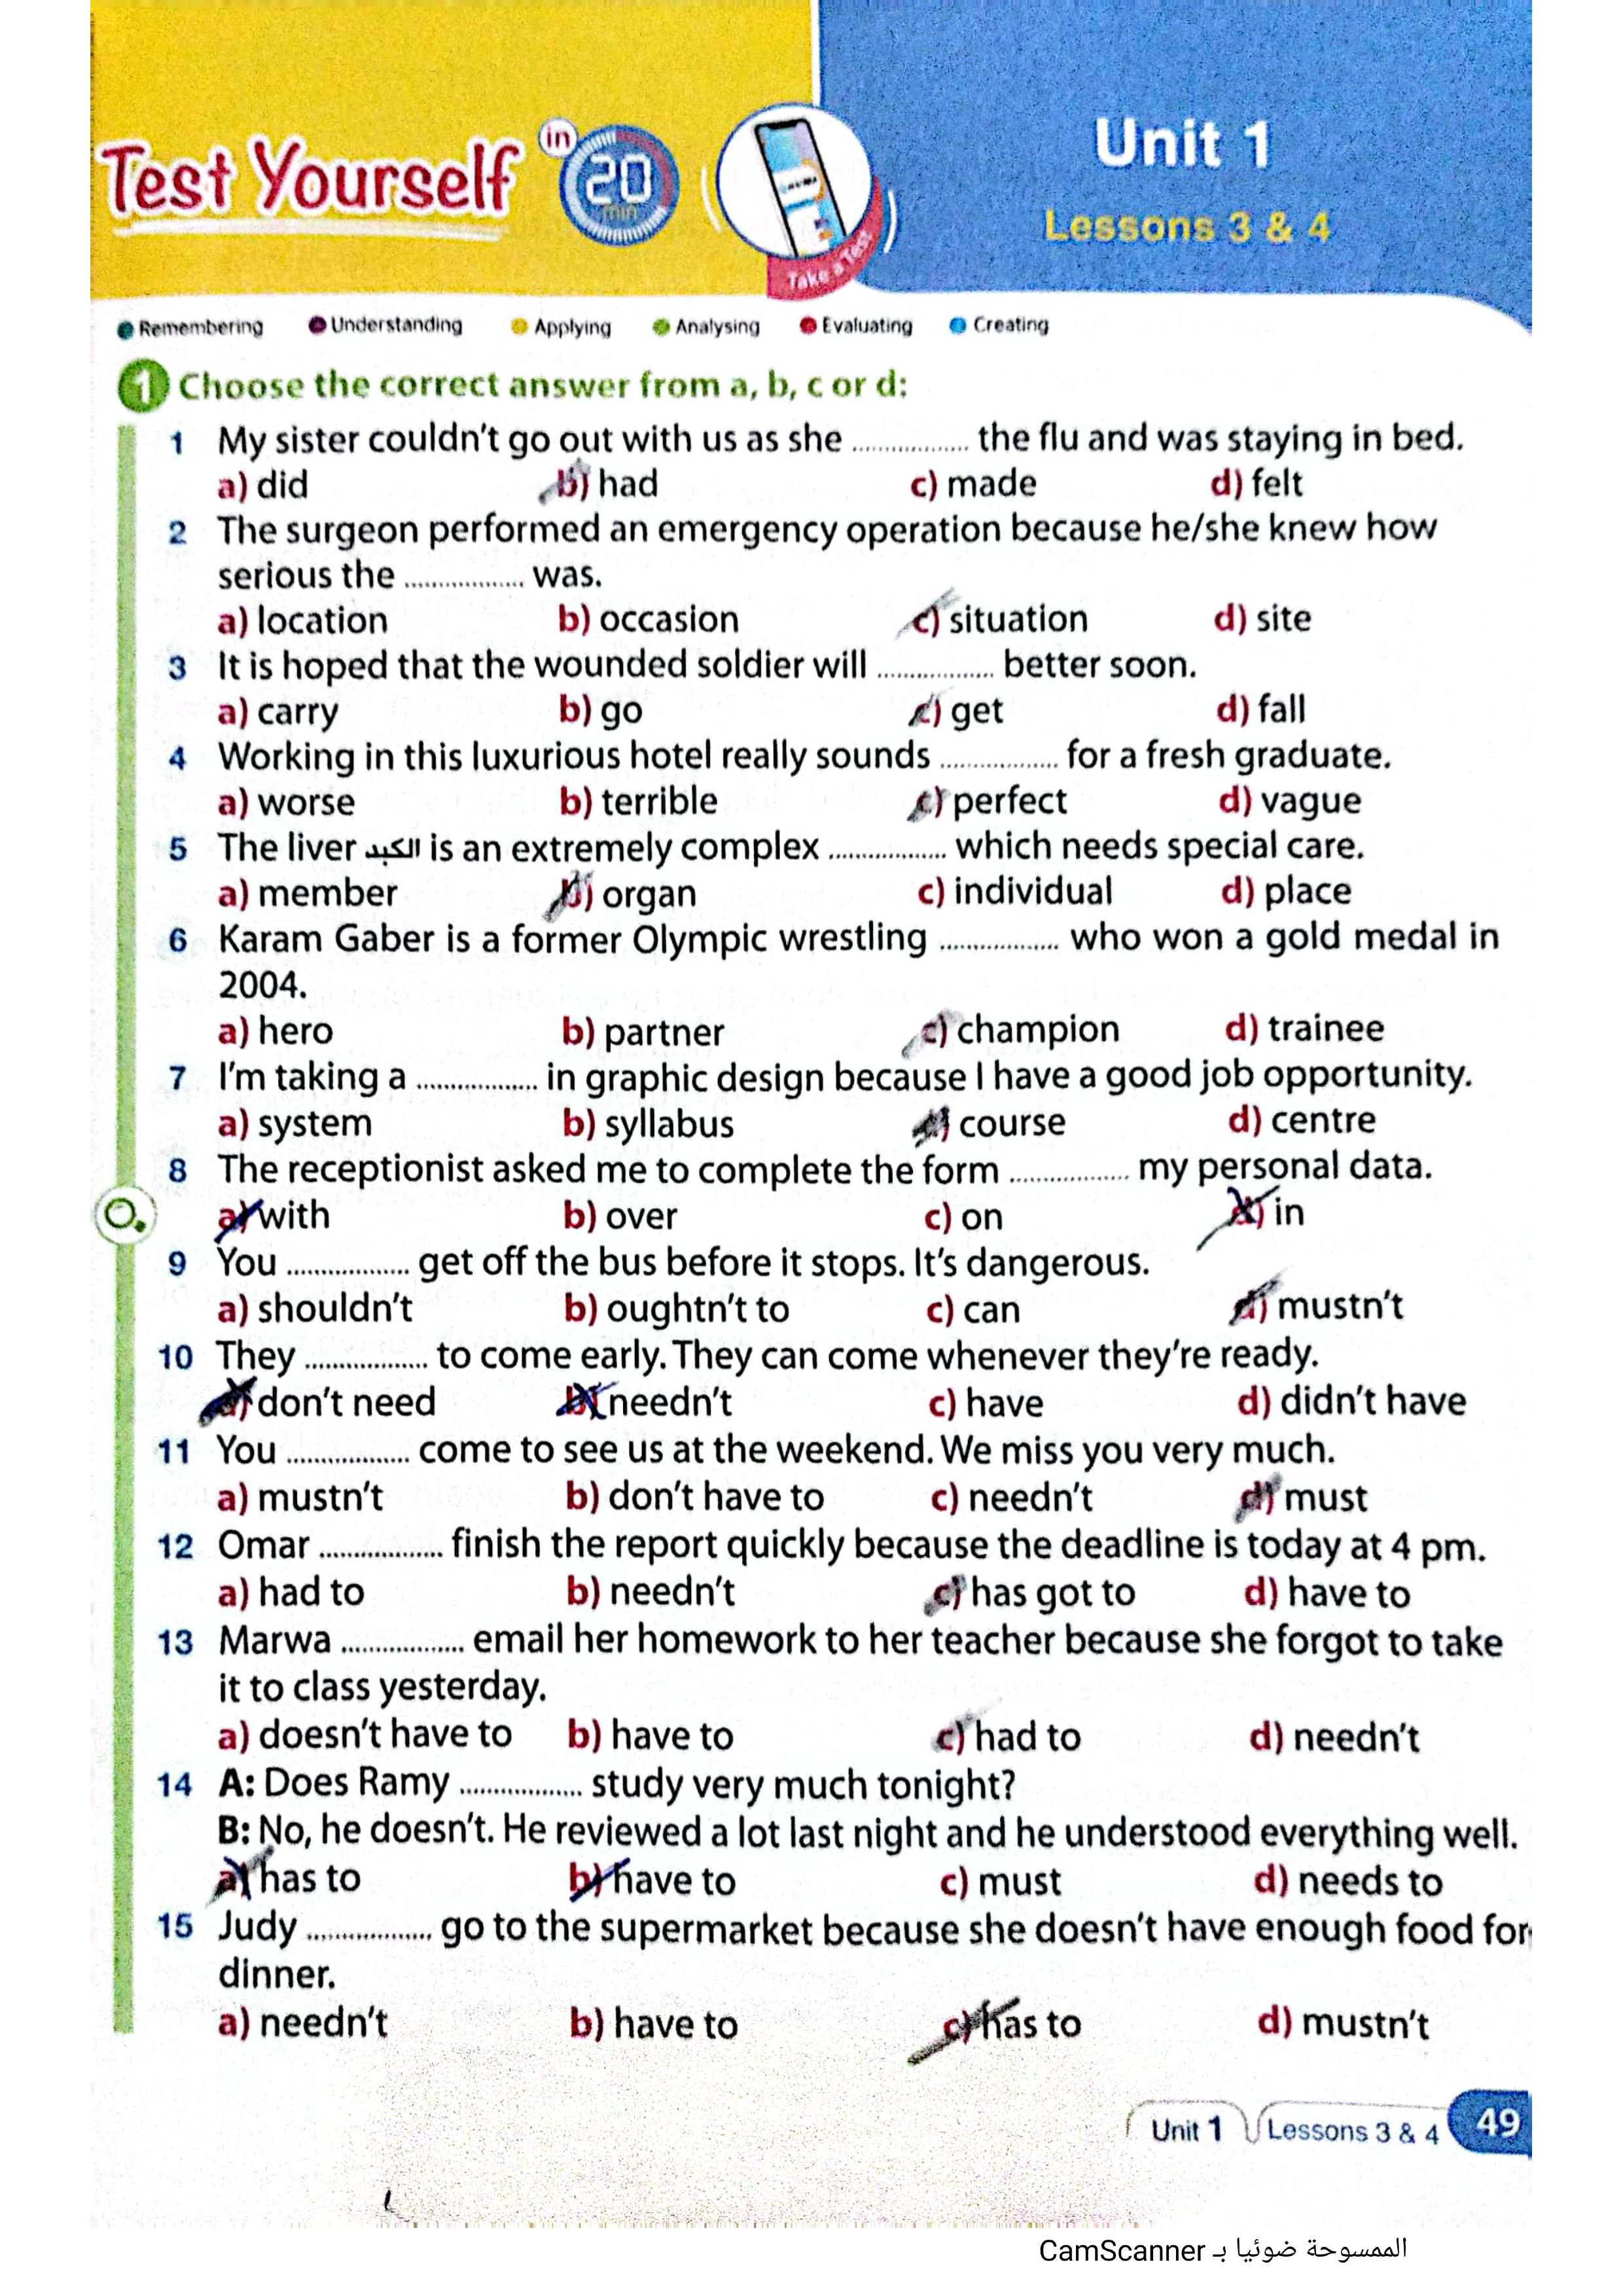 Test Yourself in 20 min
Take a Test
Unit 1
Lessons 3 & 4
Remembering Understanding Applying Analysing Evaluating Creating
1 Choose the correct answer from a, b, c or d:
1 My sister couldn't go out with us as she ................ the flu and was staying in bed.
a) did b) had c) made d) felt
2 The surgeon performed an emergency operation because he/she knew how
serious the ................ was.
a) location b) occasion c) situation d) site
3 It is hoped that the wounded soldier will ................ better soon.
a) carry b) go c) get d) fall
4 Working in this luxurious hotel really sounds ................ for a fresh graduate.
a) worse b) terrible c) perfect d) vague
5 The liver الكبد is an extremely complex ................ which needs special care.
a) member b) organ c) individual d) place
6 Karam Gaber is a former Olympic wrestling ................ who won a gold medal in
2004.
a) hero b) partner c) champion d) trainee
7 I'm taking a ................ in graphic design because I have a good job opportunity.
a) system b) syllabus c) course d) centre
8 The receptionist asked me to complete the form ................ my personal data.
a) with b) over c) on d) in
9 You ................ get off the bus before it stops. It's dangerous.
a) shouldn't b) oughtn't to c) can d) mustn't
10 They ................ to come early. They can come whenever they're ready.
a) don't need b) needn't c) have d) didn't have
11 You ................ come to see us at the weekend. We miss you very much.
a) mustn't b) don't have to c) needn't d) must
12 Omar ................ finish the report quickly because the deadline is today at 4 pm.
a) had to b) needn't c) has got to d) have to
13 Marwa ................ email her homework to her teacher because she forgot to take
it to class yesterday.
a) doesn't have to b) have to c) had to d) needn't
14 A: Does Ramy ................ study very much tonight?
B: No, he doesn't. He reviewed a lot last night and he understood everything well.
a) has to b) have to c) must d) needs to
15 Judy ................ go to the supermarket because she doesn't have enough food for
dinner.
a) needn't b) have to c) has to d) mustn't
Unit 1 Lessons 3 & 4 49
الممسوحة ضوئيا بـ CamScanner